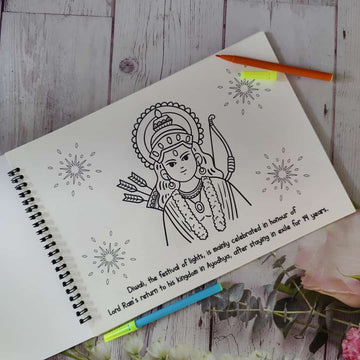 Diwali, the festival of lights, is mainly celebrated in honour of
Lord Ram's return to his kingdom in Ayodhya, after staying in exile for 14 years.